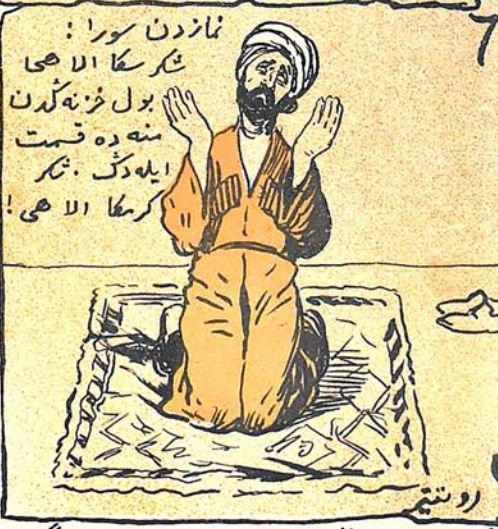 نمازدن سورا :
شكر سكا الاهی
بول خزنه ڭدن
منه ده قسمت
ایله دڭ . شكر
كرمكا الاهی !
7
روتتیر